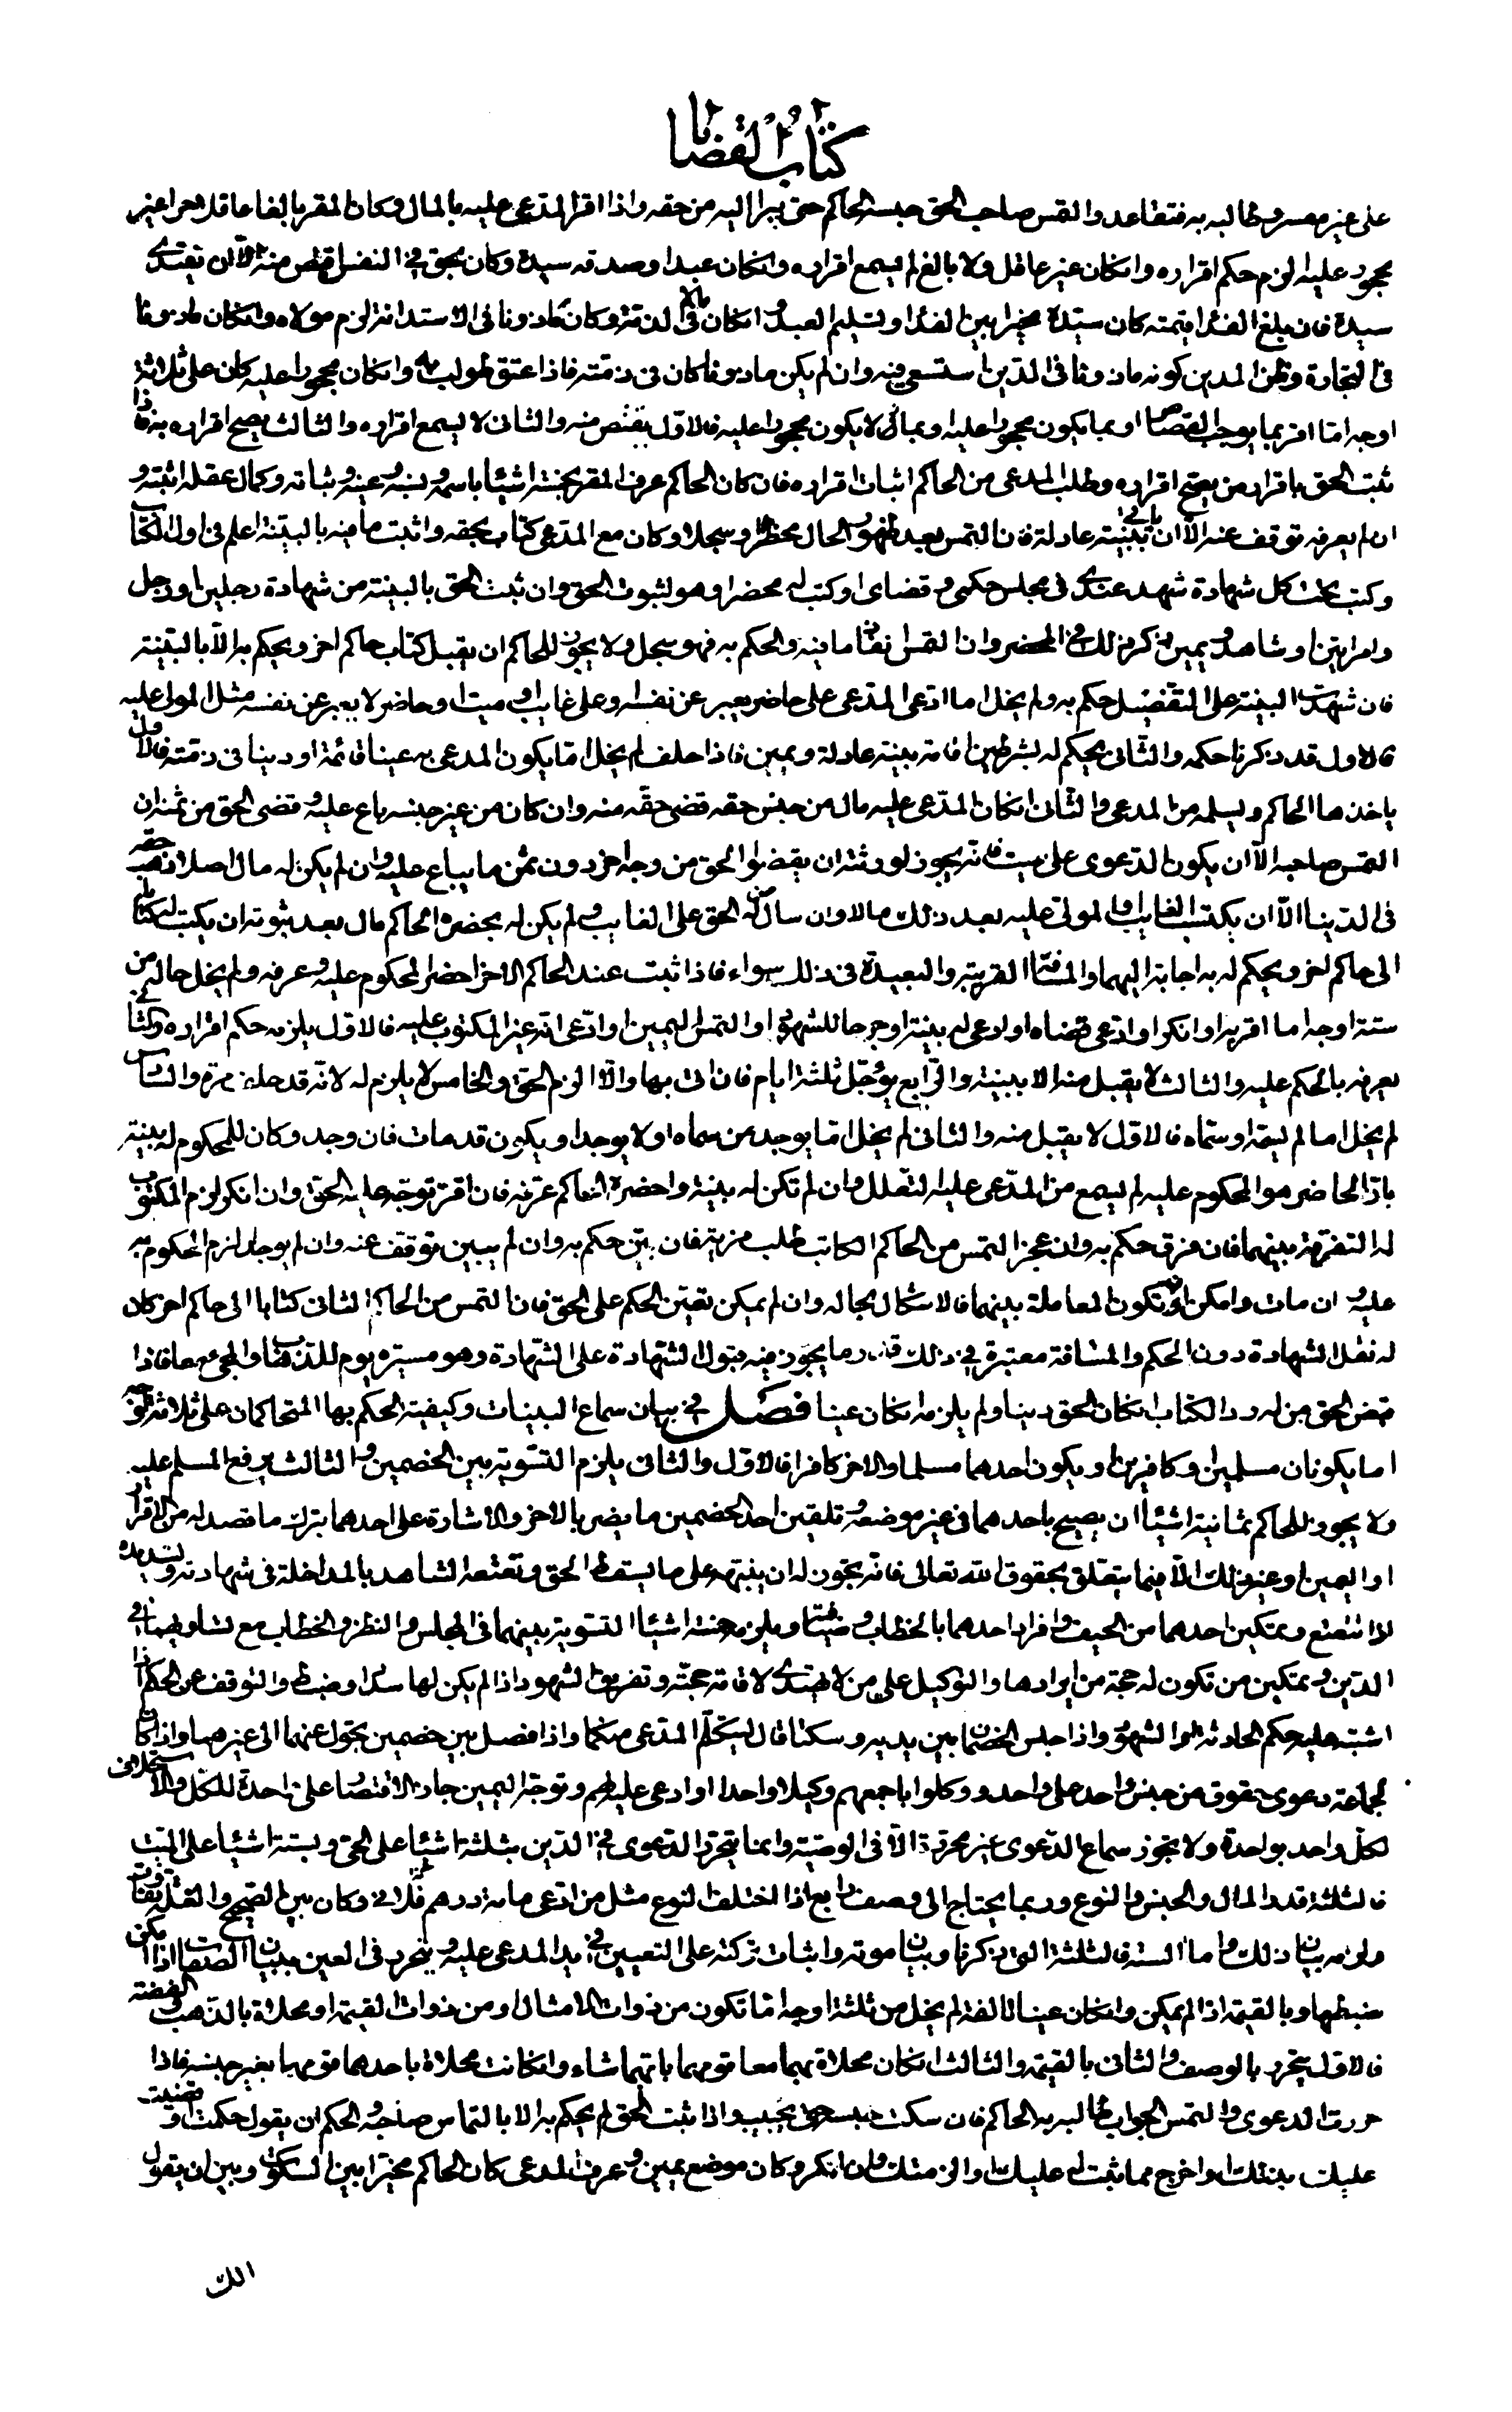 كتاب القضايا
على غير معسر وطالبه به فتقاعد والتمس صاحب الحق حبسه الحاكم حتى يبرأ اليه من حقه واذا اقر المدعى عليه بالمال وكان المقر بالغا عاقلا حرا غير
محجور عليه لزم حكم اقراره وانكان غير عاقل ولا بالغ لم يسمع اقراره وانكان عبدا وصدقه سيده وكان بحق في النفس اقتص منه الا ان يفتديه
سيده فان بلغ الفداء قيمته كان سيده مخيرا بين الفداء وتسليم العبد وانكان مالا في الذمة وكان ماذونا في الاستدانة لزم مولاه وانكان ماذونا
في التجارة وظن المدين كونه ماذونا في الدين استسعى فيه وان لم يكن ماذونا كان في ذمته فاذا عتق طولب به وانكان محجورا عليه كان على ثلاثة
اوجه اما اقر بما يوجب القصاص او بما يكون محجورا عليه او بمال لا يكون محجورا عليه فالاول يقتص منه والثاني لا يسمع اقراره والثالث يصح اقراره به فاذا
ثبت الحق باقرار من يصح اقراره وطلب المدعى من الحاكم اثبات اقراره فان كان الحاكم عرف المقر بخمسة اشياء باسمه ونسبه وعينه وثباته وكمال عقله اثبته و
ان لم يعرفه توقف عنه الا ان ياتي ببينة عادلة فان التمس بعد ظهور الحال محضرا وسجلا وكان مع المدعى كتاب بحقه واثبت ما فيه بالبينة اعلم في اول الكتاب
وكتب تحت كل شهادة شهد عندي في مجلس حكمى وقضاى او كتب له محضرا وهو لثبوت الحق وان ثبت الحق بالبينة من شهادة رجلين او رجل
وامراتين او شاهد ويمين ذكر ذلك في المحضر وان التمس انفاذ ما فيه والحكم به فهو سجل ولا يجوز للحاكم ان يقبل كتاب حاكم اخر ويحكم به الا بالبينة
فان شهدت البينة على التفضيل حكم به ولم يخل اما ادعى المدعى على حاضر يعبر عن نفسه وعلى غايب او ميت او حاضر لا يعبر عن نفسه مثل المولى عليه
فالاول قد ذكرنا حكمه والثاني يحكم له بشرطين اقامة بينة عادلة ويمين فاذا حلف لم يخل اما يكون المدعى به عينا قائمة او دينا في ذمته فالاول
ياخذها الحاكم ويسلمه من المدعى والثاني انكان المدعى عليه مال من جنس حقه قضى حقه منه وان كان من غير جنسه باع عليه وقضى الحق من ثمنه ان
التمس صاحبه الا ان يكون الدعوى على ميت فانه يجوز لورثته ان يقضوا الحق من وجه اخر دون ثمن ما يباع عليه وان لم يكن له مال اصلا ذهب حقه
في الدنيا الا ان يكتسب الغايب او المولى عليه بعد ذلك مالا وان سال من له الحق على الغايب ولم يكن له بحضرة الحاكم مال بعد ثبوته ان يكتب له كتابا
الى حاكم اخر ويحكم له به اجابة اليهما والمسافة القريبة والبعيدة في ذلك سواء فاذا ثبت عند الحاكم الاخر احضر المحكوم عليه وعرفه ولم يخل حاله من
ستة اوجه اما اقر به او انكر او ادعى قضاه او ادعى له بينة او جرحا للشهود او التمس اليمين او ادعى انه غير المكتوب عليه فالاول يلزمه حكم اقراره والثاني
يعرفه بالحكم عليه والثالث لا يقبل منه الا ببينة والرابع يؤجل ثلثة ايام فان اتى بها والا الزم الحق والخامس لا يلزم له لانه قد حلف مرة والسادس
لم يخل اما لم يسمه او سماه فالاول لا يقبل منه والثاني لم يخل اما يوجد من سماه او لا يوجد او يكون قد مات فان وجد وكان للمحكوم له بينة
بان الحاضر هو المحكوم عليه لم يسمع من المدعى عليه التعلل وان لم تكن له بينة واحضره الحاكم عرفه فان اقر توجه عليه الحق وان انكر لزم المكتوب
له التفرقة بينهما فان فرق حكم به وان عجز التمس من الحاكم الكاتب طلب مزية فان بين حكم به وان لم يبين توقف عنه وان لم يوجد لزم المحكوم به
عليه وان مات وامكن ان تكون المعاملة بينهما فالاشكال بحاله وان لم يمكن تعين الحكم على الحق فان التمس من الحاكم الثاني كتابا الى حاكم اخر كان
له نقل الشهادة دون الحكم والمسافة معتبرة في ذلك قدر ما يجوز فيه قبول الشهادة على الشهادة وهو مسيرة يوم للذهاب والمجئ معا فاذا
قبض الحق من له رد الكتاب انكان الحق دينا ولم يلزمه انكان عينا فصل في بيان سماع البينات وكيفية الحكم بها المتحاكمان على ثلاثة اوجه
اما يكونان مسلمين او كافرين او يكون احدهما مسلما والاخر كافرا فالاول والثاني يلزم التسوية بين الخصمين والثالث يرفع المسلم عليه
ولا يجوز للحاكم ثمانية اشياء ان يصيح باحدهما في غير موضعه وتلقين احد الخصمين ما يضر بالاخر والاشارة على احدهما بترك ما قصد له من الاقرار
او اليمين او غير ذلك الا فيما يتعلق بحقوق الله تعالى فانه يجوز له ان ينبه على ما يسقط الحق وتعتعة الشاهد بالمداخلة في شهادته وتسديده
اذا تتعتع وتمكين احدهما من الحيف وافراد احدهما بالخطاب وضيافته ويلزمه خمسة اشياء التسوية بينهما في المجلس والنظر والخطاب مع تساويهما في
الدين وتمكين من تكون له حجة من ايرادها والتوكيل على من لا يهتدى لاقامة حجته وتفريق الشهود اذا لم يكن لها سداد وضبط والتوقف عن الحكم اذا
اشتبه عليه حكم الحادثة او الشهود واذا جلس الخصمان بين يديه وسكتا قال ليتكلم المدعى منكما واذا فصل بين خصمين تحول عنهما الى غيرهما واذا كان
لجماعة دعوى حقوق من جنس واحد على واحد ووكلوا باجمعهم وكيلا واحدا او ادعى عليهم وتوجه اليمين جاز الاقتصار على واحدة للكل والاستحلاف
لكل واحد بواحدة ولا يجوز سماع الدعوى غير محررة الا في الوصية وانما يتحرر الدعوى في الدين بثلثة اشياء على الحي وبستة اشياء على الميت
فالثلثة قدر المال والجنس والنوع وربما يحتاج الى وصف رابع اذا اختلف النوع مثل من ادعى مائة درهم غلة وكان بين الصحيح والغلة تفاوت
ولزمه بيان ذلك واما الستة فالثلثة التي ذكرنا وبيان موته واثبات تركته على التعيين في يد المدعى عليه وتحرر في العين ببيان الصفات اذا امكن
ضبطها وبالقيمة اذا لم يمكن وانكان عينا تالفة لم يخل من ثلثة اوجه اما تكون من ذوات الامثال او من ذوات القيمة او محلاة بالذهب والفضة
فالاول تتحرر بالوصف والثاني بالقيمة والثالث انكان محلاة بهما معا قومها بايهما شاء وانكانت محلاة باحدهما قومها بغير جنسه فاذا
حررت الدعوى والتمس الجواب طالبه به الحاكم فان سكت حبسه حتى يجيب واذا ثبت الحق لم يحكم به الا بالتماس صاحبه والحكم ان يقول حكمت او قضيت
عليك بذلك او اخرج مما ثبت له عليك او الزمتك وان انكر وكان موضع يمين وعرف المدعى كان الحاكم مخيرا بين السكوت وبين ان يقول
الك